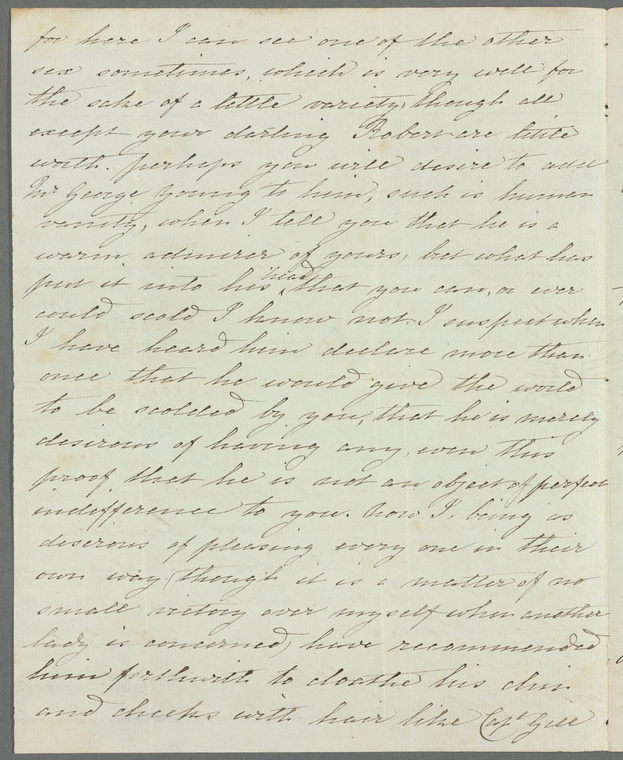 for here I can see one of the other
sex sometimes, which is very well for
the sake of a little variety, though all
except your darling Robert are little
worth. perhaps you will desire to add
Mr George Young to him, such is human
vanity, when I tell you that he is a
warm admirer of yours, but what has
put it into his head that you can, or ever
could scold I know not. I suspect when
I have heard him declare more than
once that he would give the world
to be scolded by you, that he is merely
desirous of having any, even this
proof that he is not an object of perfect
indifference to you. Now I, being as
desirous of pleasing every one in their
own way, (though it is a matter of no
small victory over myself when another
lady is concerned) have recommended
him forthwith to cloathe his chin
and cheeks with hair like Capt Gill